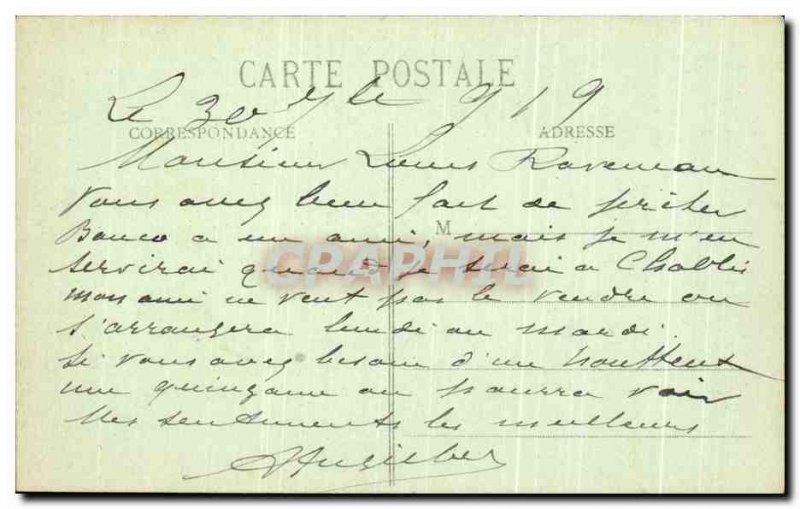 CARTE POSTALE
Le 30 7 le 919
CORRESPONDANCE
ADRESSE
Monsieur Louis Raveneau
Vous avez bien fait de prêter
M
Banco a un ami, mais je m'en
CPAPHIL
servirai quand je serai a Chablis
mon ami ne veut pas le vendre on
s'arrangera lundi ou mardi
si vous avez besoin d'un
une quinzaine on pourra voir
Mes sentiments les meilleurs